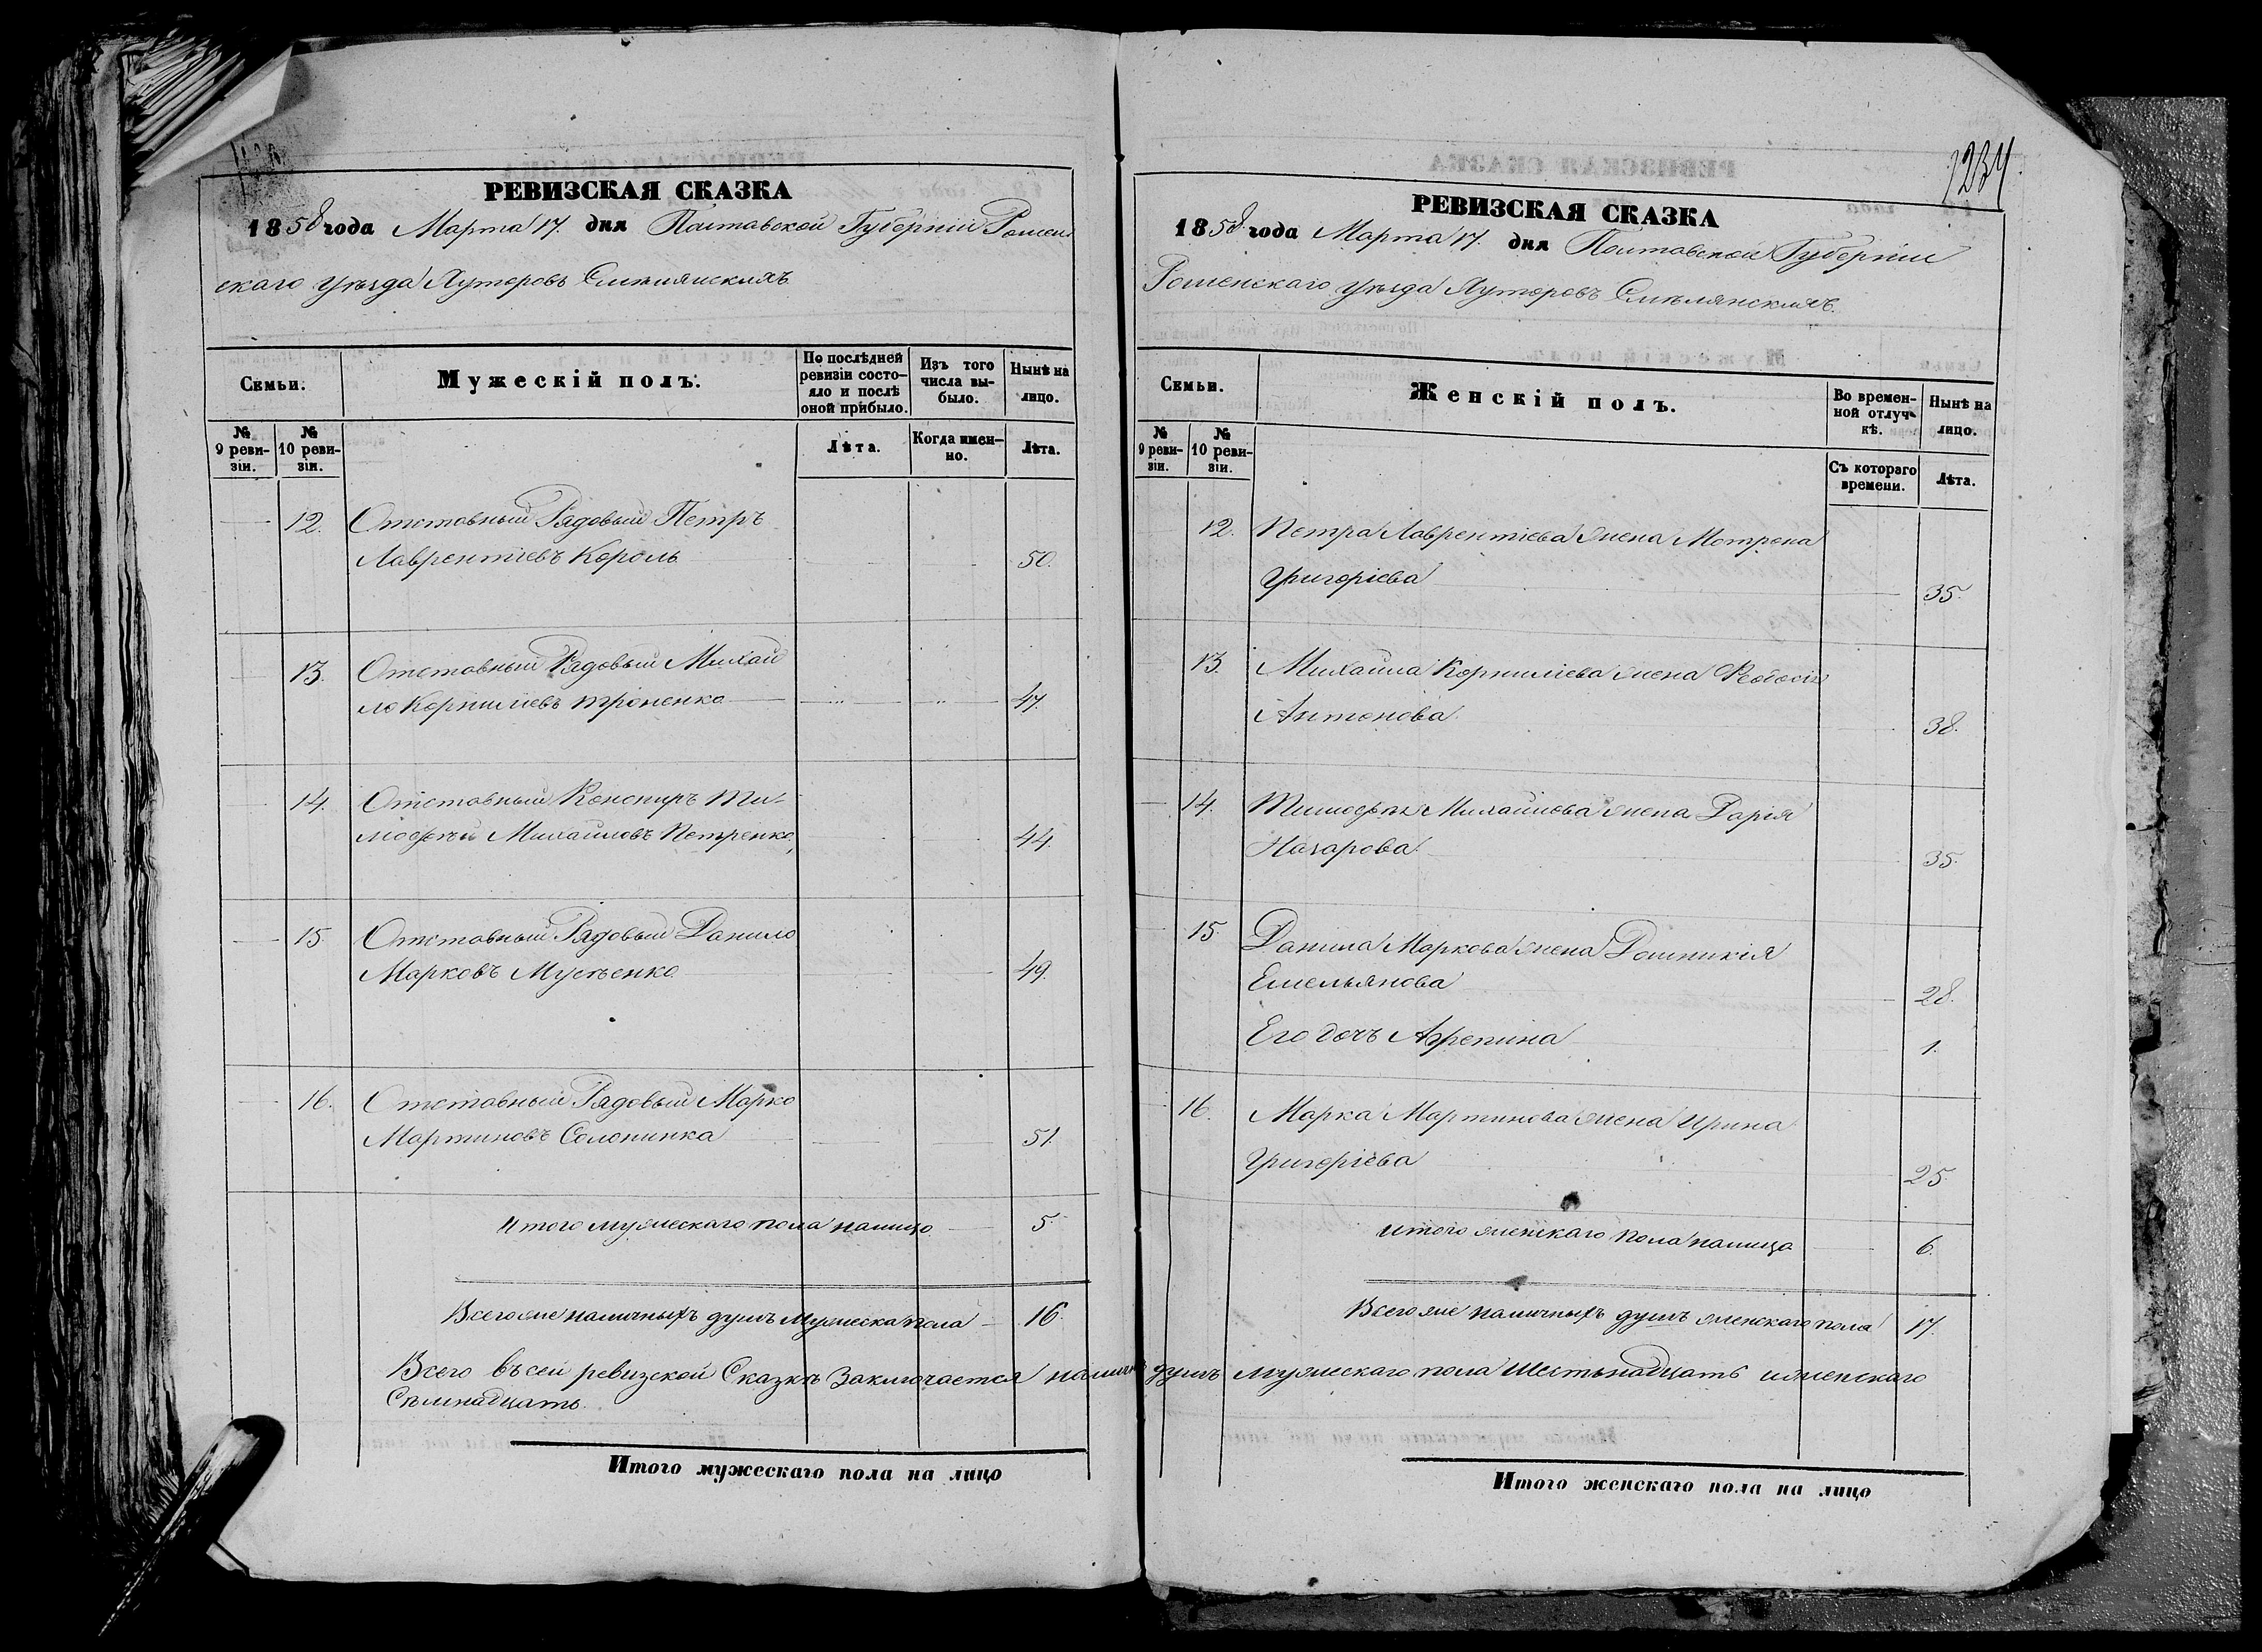 РЕВИЗСКАЯ СКАЗКА
1858 года Марта 17. дня Полтавской Губерніи Ромен
скаго уѣзда Хуторовъ Смѣлянскихъ
Семьи.
Мужескій полъ.
По послѣдней ревизіи состояло и послѣ оной прибыло.
Изъ того числа выбыло.
Нынѣ на лицо.
№ 9 ревизіи.
№ 10 ревизіи.
Лѣта.
Когда именно.
Лѣта.
12. Отставный Рядовый Петръ
Лаврентіевъ Король 50.
13. Отставный Рядовый Михай
ло Корниліевъ Троненко 47.
14. Отставный Канониръ Ти-
мофѣй Михайловъ Петренко 44.
15. Отставный Рядовый Данило
Марковъ Мусѣенко 49.
16. Отставный Рядовый Марко
Мартиновъ Солонинка 51.
Итого мужескаго пола налицо 5.
Всего же наличныхъ душъ мужеска пола 16.
Всего въ сей ревизской Сказкѣ заключается налично душъ мужескаго пола шестьнадцать и женскаго
Сѣмнадцать
Итого мужескаго пола на лицо
1234.
РЕВИЗСКАЯ СКАЗКА
1858. года Марта 17. дня Полтавской Губерніи
Роменскаго уѣзда Хуторовъ Смѣлянскихъ.
Семьи.
Женскій полъ.
Во временной отлучкѣ.
Нынѣ на лицо.
№ 9 ревизіи.
№ 10 ревизіи.
Съ котораго времени.
Лѣта.
12. Петра Лаврентіева жена Мотрона
Григоріева 35.
13. Михайла Корниліева жена Феодосія
Антонова 38.
14. Тимофѣя Михайлова жена Дарія
Назарова 35.
15. Данила Маркова жена Домникія
Емельянова 28.
Его дочъ Агрепина 1.
16. Марка Мартинова жена Ирина
Григоріева 25.
Итого женскаго пола налицо 6.
Всего же наличныхъ душъ женскаго пола 17.
Итого женскаго пола на лицо